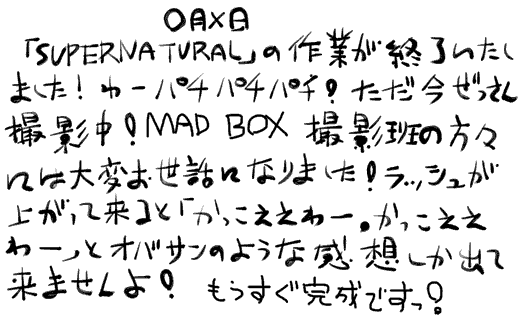 ○月×日
「SUPERNATURAL」の作業が終了いたし
ました！わーパチパチパチ！ただ今ぜっさん
撮影中！MAD BOX 撮影班の方々
には大変お世話になりました！ラッシュが
上がって来ると「かっこええわー。かっこええ
わー」とオバサンのような感想しか出て
来ませんよ！もうすぐ完成ですっ！